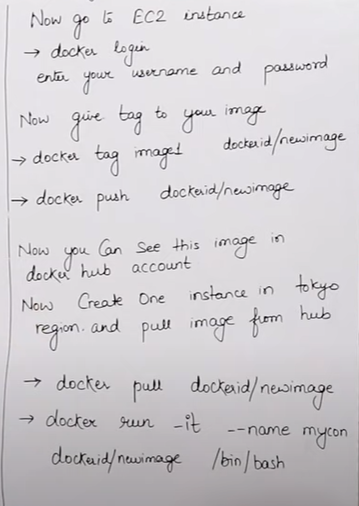 Now go to EC2 instance
→ docker login
enter your username and password
Now give tag to your image
→ docker tag image1 dockerid/newimage
→ docker push dockerid/newimage
Now you Can See this image in
docker hub account
Now Create One instance in tokyo
region. and pull image from hub
→ docker pull dockerid/newimage
→ docker run -it --name mycon
dockerid/newimage /bin/bash